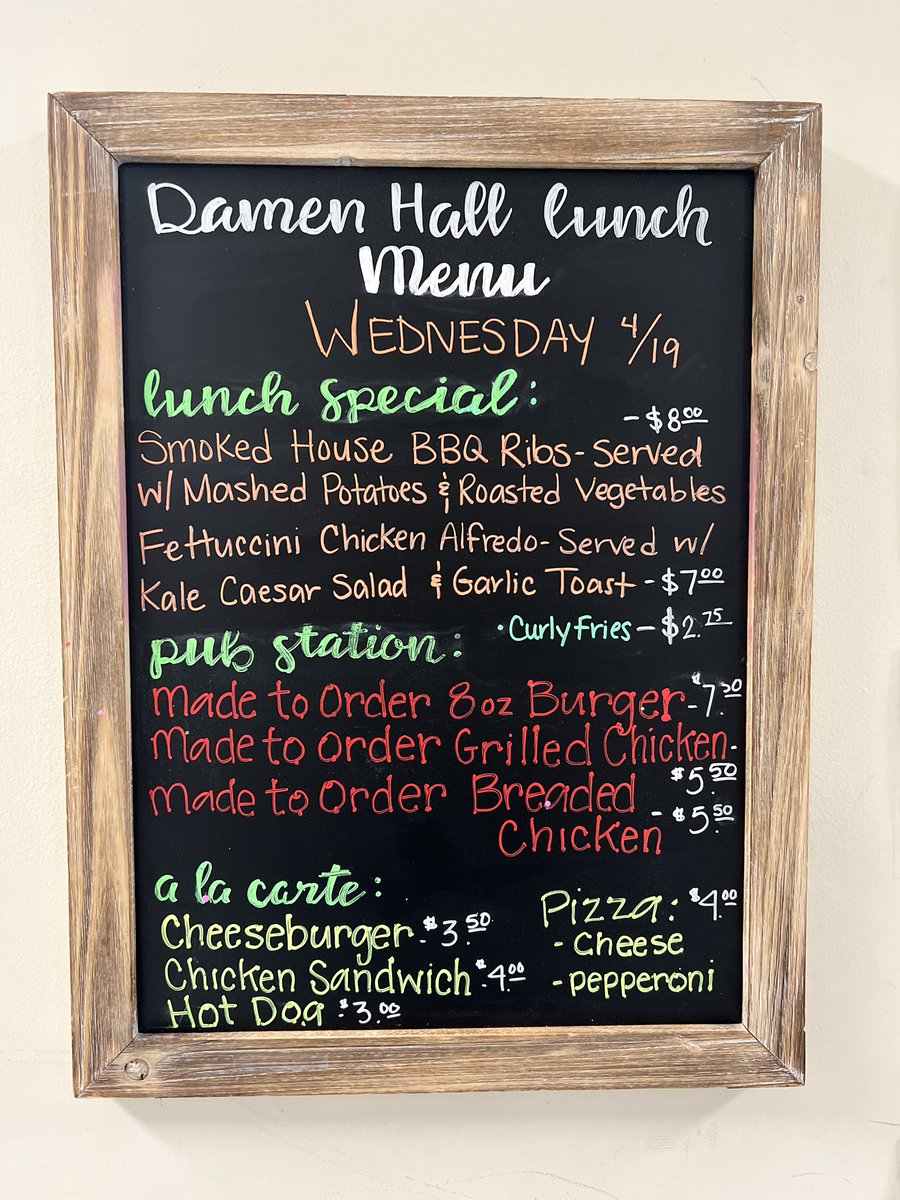 Damen Hall lunch
Menu
WEDNESDAY 4/19
lunch special:
- $8.00
Smoked House BBQ Ribs - Served
w/ Mashed Potatoes & Roasted Vegetables
Fettuccini Chicken Alfredo - Served w/
Kale Caesar Salad & Garlic Toast - $7.00
• Curly Fries - $2.75
pub station:
Made to Order 8oz Burger - $7.50
Made to Order Grilled Chicken -
$5.50
Made to Order Breaded
Chicken - $5.50
a la carte:
Cheeseburger - $3.50
Chicken Sandwich - $4.00
Hot Dog - $3.00
Pizza: $4.00
- Cheese
- pepperoni